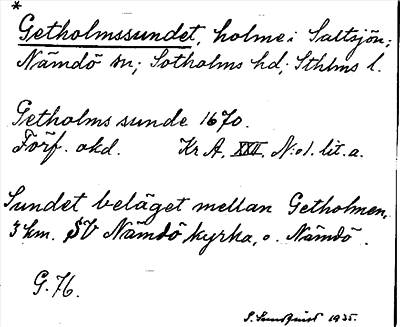 *
Getholmssundet, holme i Saltsjön;
Nämdö sn; Sotholms hd; Sthlms l.
Getholms sunde 1670.
Förf. okd. Kr A. XXII. N:o 1. lit. a.
Sundet beläget mellan Getholmen,
3 km. SV Nämdö kyrka, o. Nämdö.
G. 76.
S. 1935.